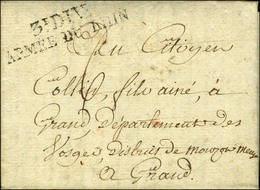 3e DIV.
ARMÉE DU RHIN
Au Citoyen
Collin, fils ainé, à
Grand, Département des
Vosges, District de
a Grand.